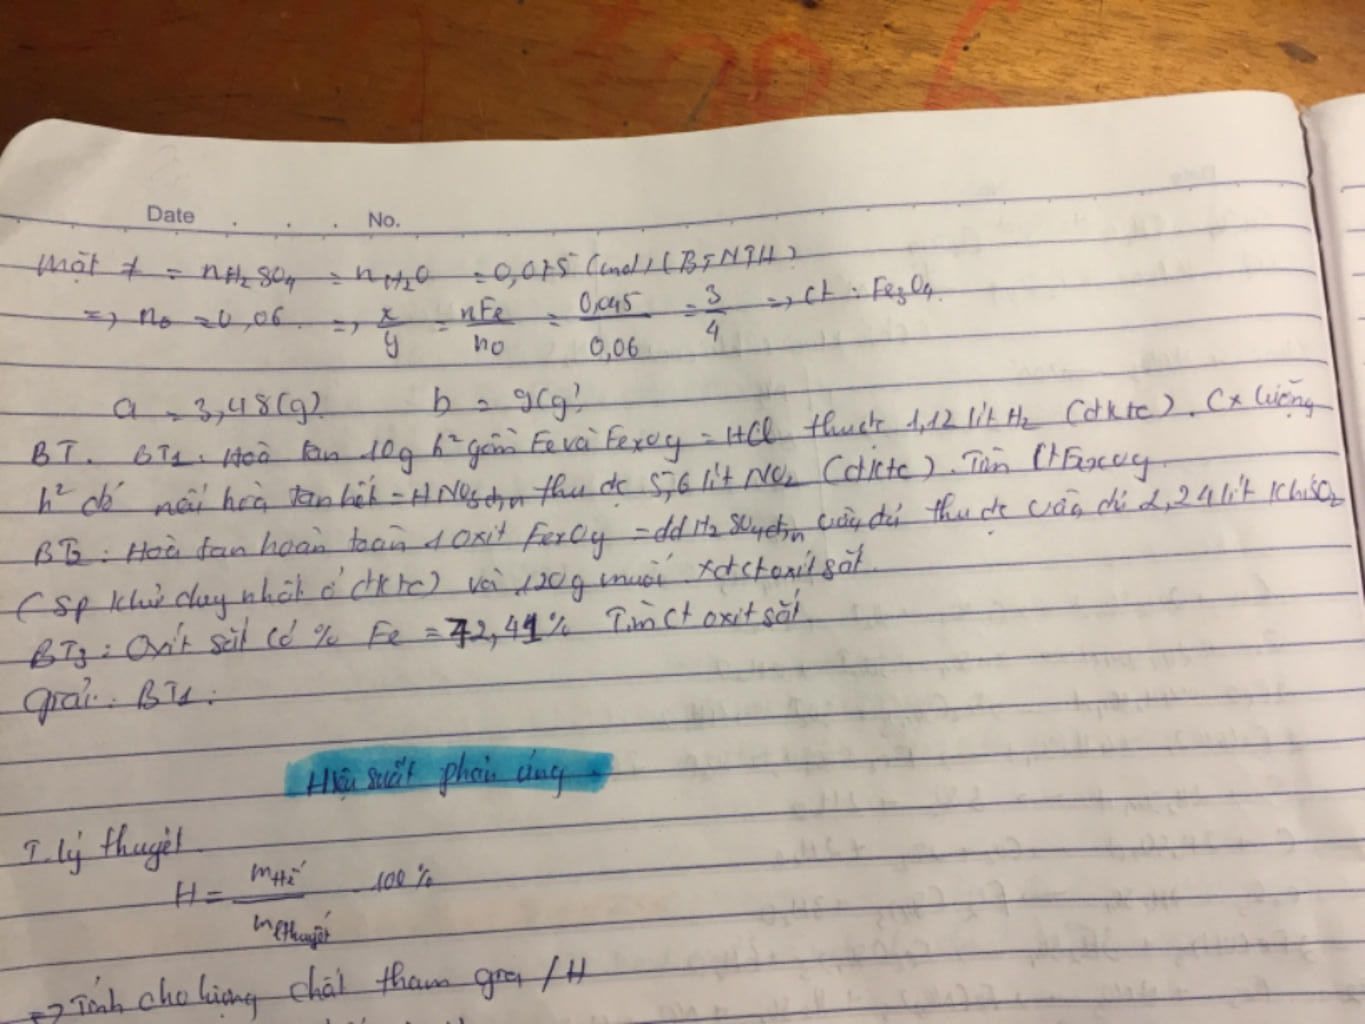 Date . . . No.
mặt ≠ = nH₂SO₄ = nH₂O = 0,075 (mol) (BTNTH)
=> nO = 0,06 => x/y = nFe/nO = 0,045/0,06 = 3/4 => Ct : Fe₃O₄
a = 3,48(g) b = 9(g)
BT. BT1. Hoà tan 10g h² gồm Fe và FexOy = HCl thu dc 1,12 lít H₂ (đktc). Cx lượng
h² đó nếu hoà tan hết = HNO₃đ,n thu dc 5,6 lít NO₂ (đktc). Tìm Ct FexOy
BT2 : Hoà tan hoàn toàn 1 oxit FexOy = dd H₂SO₄đ,n vừa đủ thu dc 2,24 lít khí SO₂
(sp khử duy nhất ở đktc) và 120g muối xđ ct oxit sắt.
BT3 : Oxit sắt có % Fe = 72,41% Tìm Ct oxit sắt
Giải : BT1 :
Hiệu suất phản ứng.
I. lý thuyết
H = mtt / mlthuyết . 100%
=> Tính cho lượng chất tham gia / H